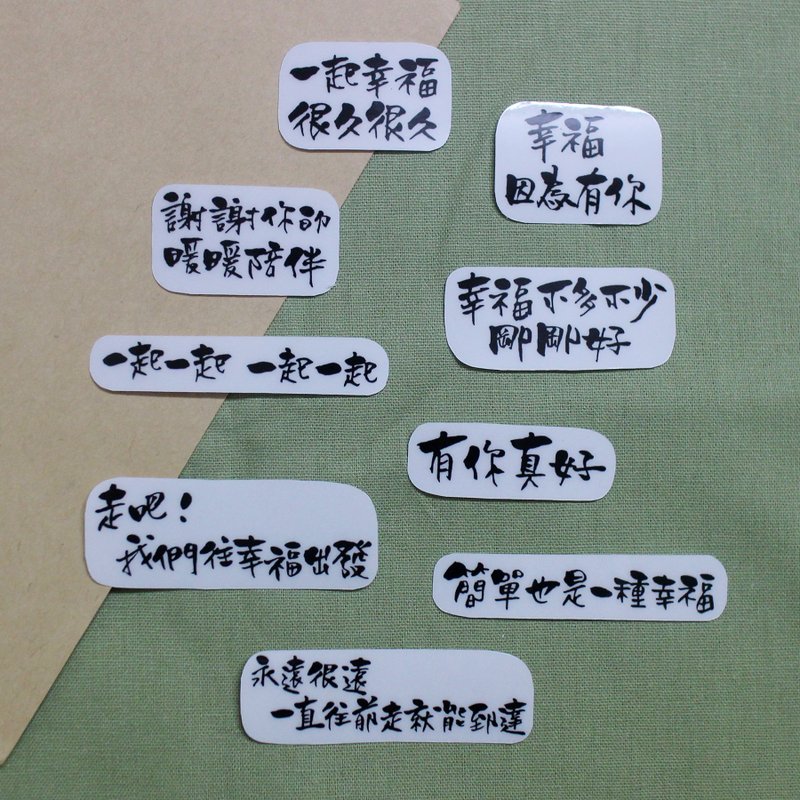 一起幸福
很久很久
幸福
因為有你
謝謝你的
暖暖陪伴
幸福不多不少
剛剛好
一起一起 一起一起
有你真好
走吧！
我們往幸福出發
簡單也是一種幸福
永遠很遠
一直往前走就能到達